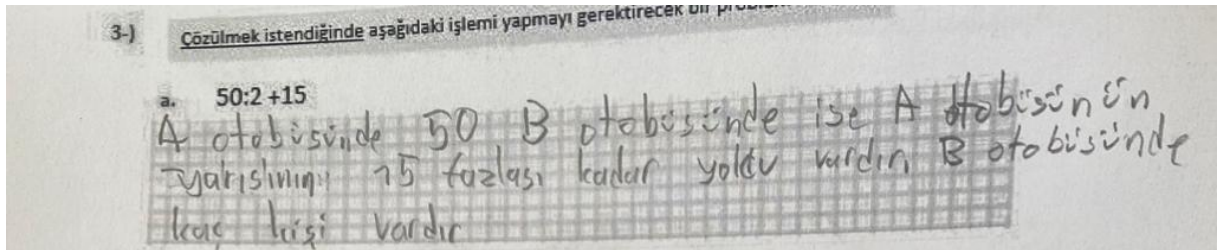 3-) Çözülmek istendiğinde aşağıdaki işlemi yapmayı gerektirecek bir
a. 50:2 +15
A otobüsünde 50 B otobüsünde ise A otobüsünün
yarısının 15 fazlası kadar yolcu vardır, B otobüsünde
kaç kişi vardır